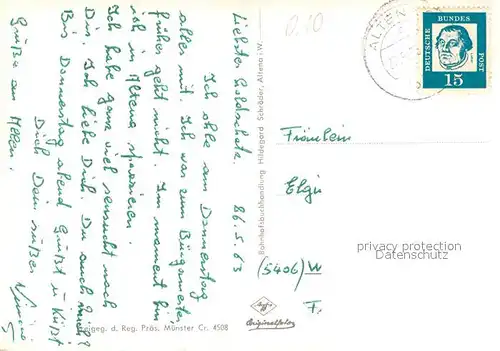 0.10
ALTEN
DEUTSCHE BUNDES POST
15
Liebster Goldschatz. 86.5.63
Ich ohle am Donnerstag
alles mit. Ich war zum Bürgermeister
früher geht nicht. Im moment bin
ich in Altena spazieren.
Ich habe ganz viel sensucht nach
Dir. Ich liebe Dich. Du auch mich?
Bis Donnerstag abend Grüßt u. Küßt
Dich Dein süßer
Grüße an Allen.
Bahnhofsbuchhandlung Hildegard Schröder, Altena i.W.
Fräulein
Elgi
(5406) W
F.
privacy protection
Datenschutz
Originalfoto
Freigeg. d. Reg. Präs. Münster Cr. 4508